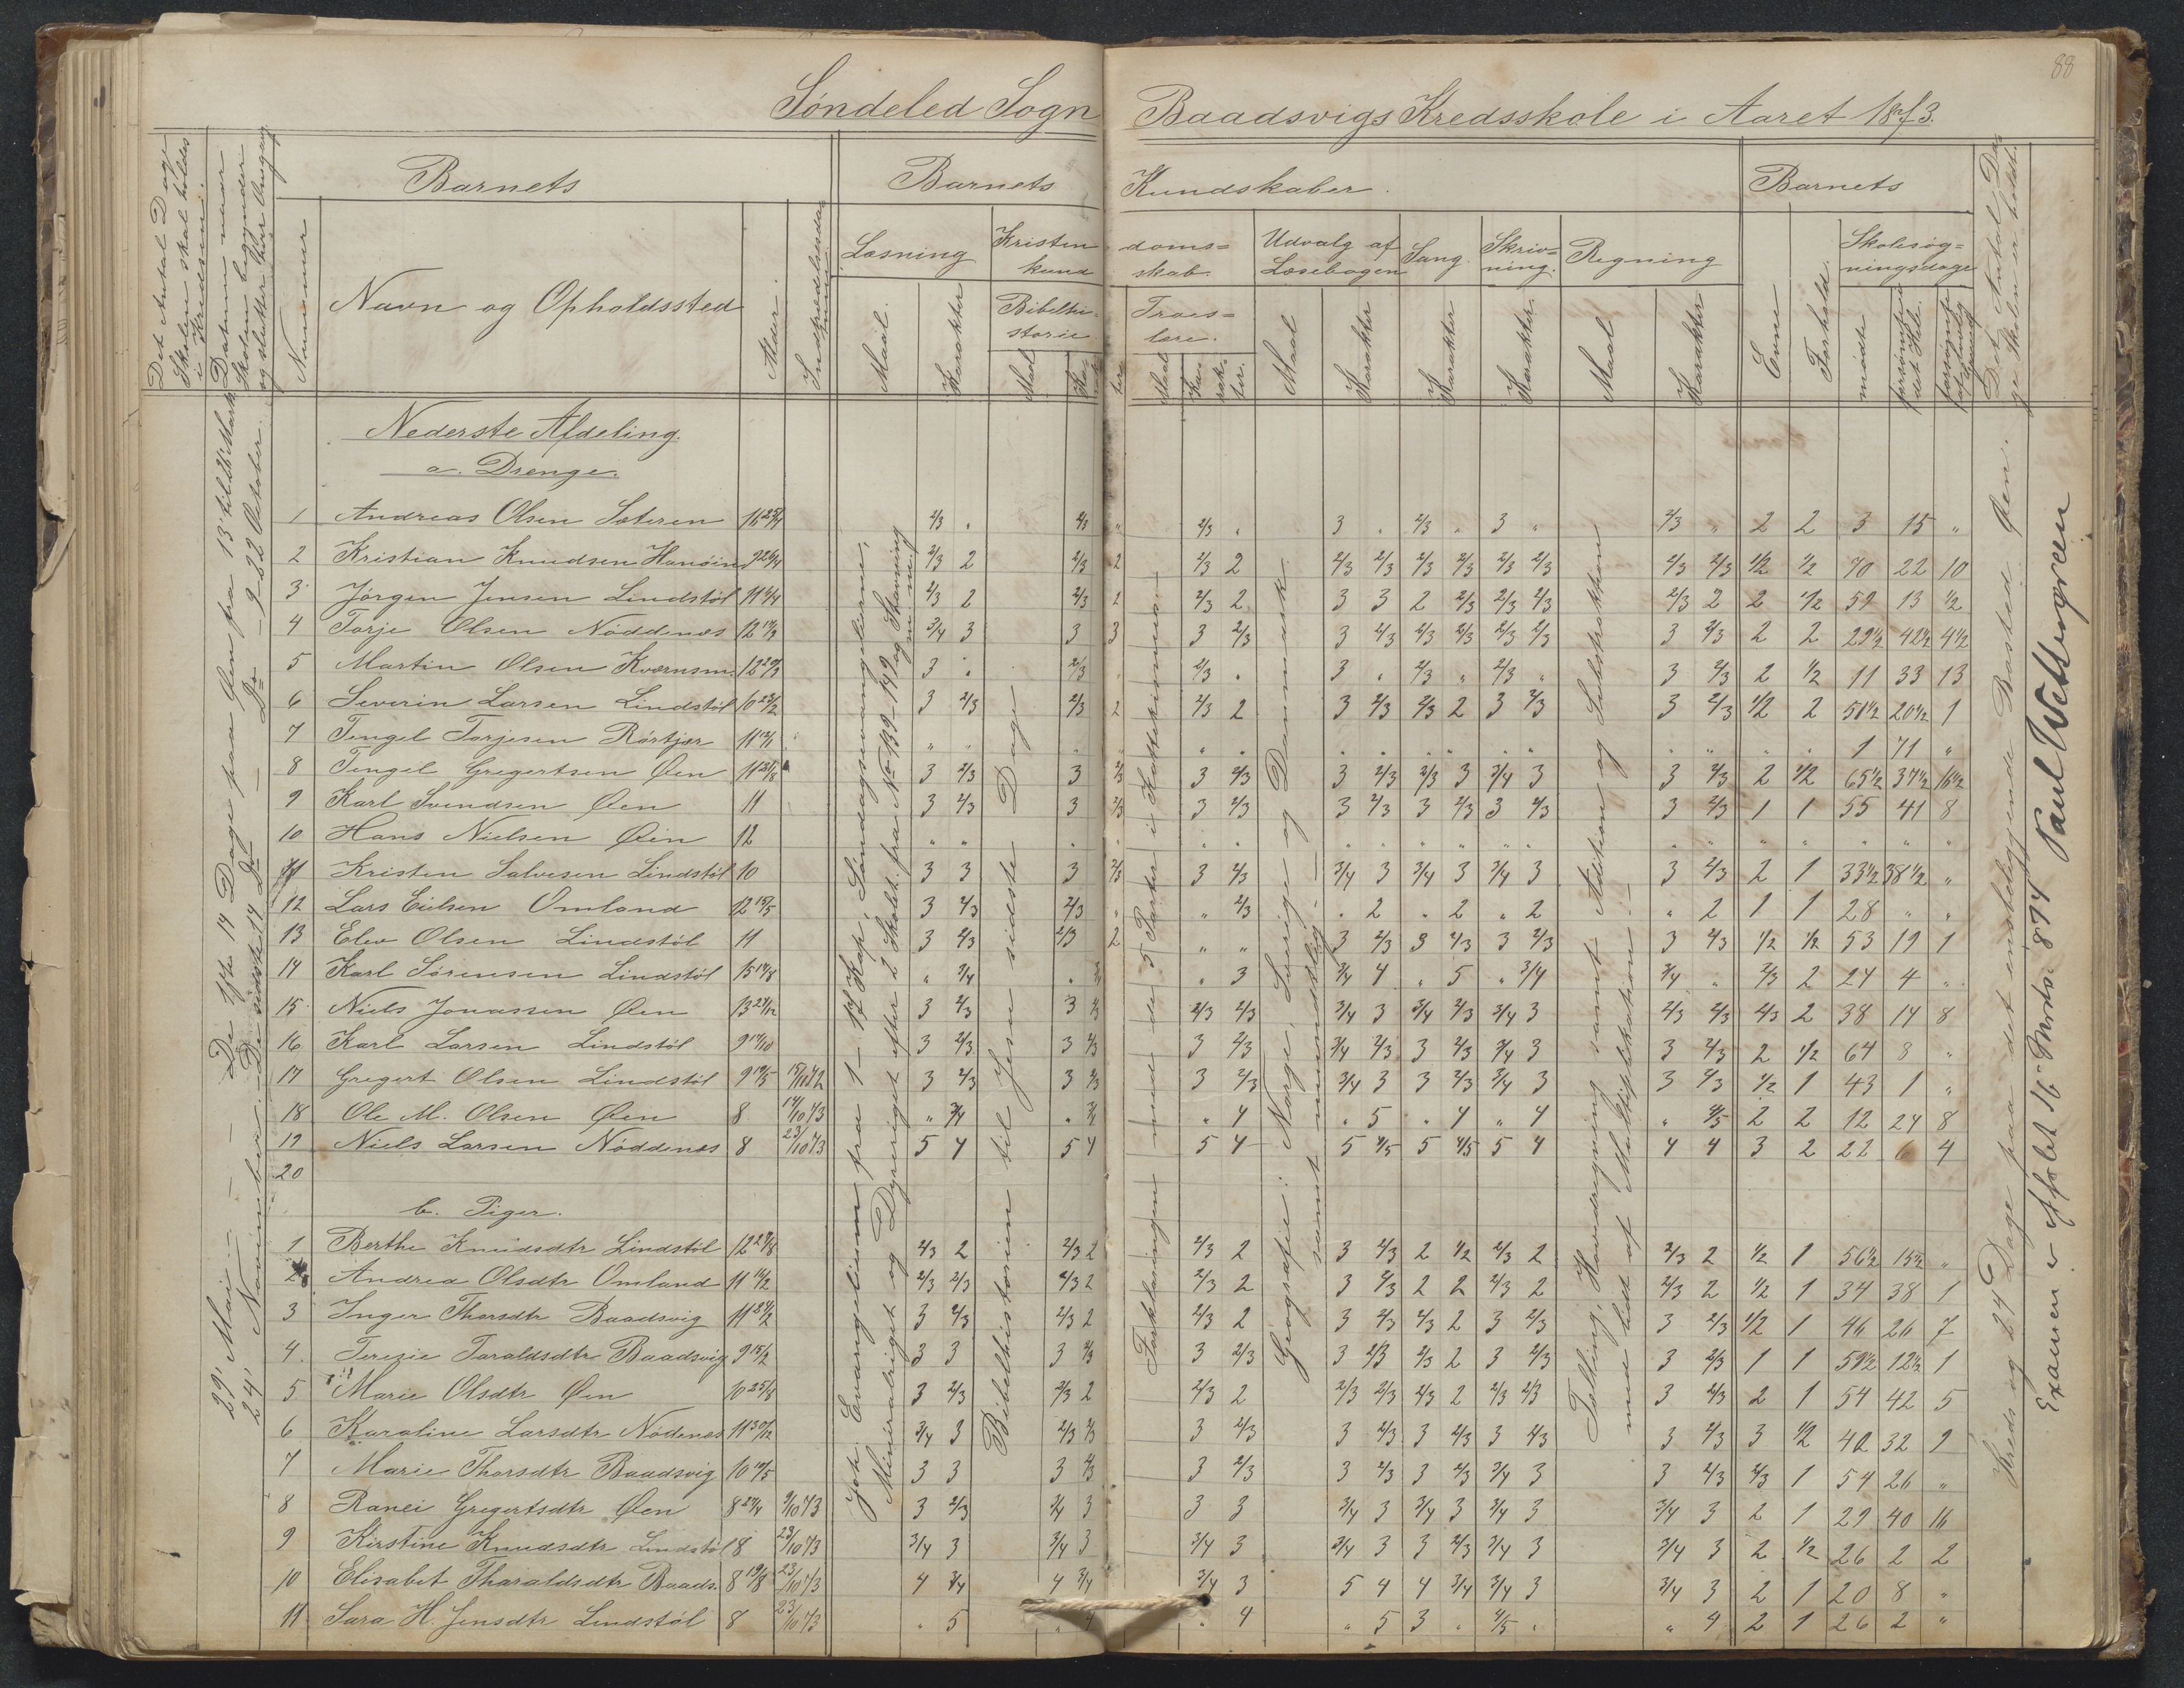 88
Søndeled Sogn Baadsvigs Kredsskole i Aaret 1873.
Det Antal Dage Skolen skal holdes i Kredsen.
Datum naar Skolen begynder og slutter hver Omgang
Barnets
Nummer
Navn og Opholdssted
Alder.
Indtrædelsesdatum
Barnets Kundskaber.
Læsning
Maal.
Karakter
Kristendomskundskab
Bibelhistorie
Maal
Karakter
Troeslære.
Maal
Karakter.
Udvalg af Læsebogen
Maal
Karakter
Sang.
Karakter
Skrivning.
Karakter
Regning
Maal
Karakter
Barnets
Evne
Forhold.
Skolesøgningsdage
mødte
forsømte det Hele.
forsømte af lovlig Grund
Det Antal Dage Skolen er holdt.
Nederste Afdeling.
a. Drenge.
1 Andreas Olsen Sateren 2/3 " 2/3 " 2/3 " 3 " 2/3 " 3 " 2/3 " 2 2 3 15 "
2 Kristian Knudsen Hansin 2/3 2 2/3 2 2/3 2 2/3 2/3 2/3 2/3 2/3 2/3 2/3 2/3 1/2 1/2 70 22 10
3 Jørgen Jensen Lindstøl 11 2/3 2 2/3 2 2/3 2 3 3 2 2/3 2/3 2/3 2/3 2 2 1/2 59 13 1/2
4 Torje Olsen Nøddenæs 12 3/4 3 3 3 3 2/3 3 2/3 2/3 2/3 2/3 2/3 3 2/3 2 2 29 1/2 42 1/2 4 1/2
5 Martin Olsen Kværnsm. 12 3 " 2/3 " 2/3 " 3 " 2/3 " 2/3 " 3 2/3 2 1/2 11 33 13
6 Severin Larsen Lindstøl 10 3 2/3 2/3 2 2/3 2 3 2/3 2/3 2 3 2/3 3 2/3 1/2 2 51 1/2 20 1/2 1
7 Tengel Torjesen Rørtjær 11 " " " " " " " " " " " " " " " " 1 71 "
8 Tengel Gregertsen Øen 11 3 2/3 3 2/3 3 2/3 3 2/3 2/3 3 3/4 3 3 2/3 2 1/2 65 1/2 37 1/2 16 1/2
9 Karl Svendsen Øen 11 3 2/3 3 2/3 3 2/3 3 2/3 3 2/3 3 2/3 3 2/3 1 1 55 41 8
10 Hans Nielsen Øen 12 " " " " " " " " " " " " " " " " " " "
11 Kristen Salvesen Lindstøl 10 3 3 3 2/3 3 2/3 3/4 3 3/4 3 3/4 3 3 2/3 2 1 33 1/2 38 1/2 "
12 Lars Eielsen Omland 12 15/5 3 2/3 2/3 " " 2/3 " 2 " 2 " 2 " 2 1 1 28 " "
13 Elev Olsen Lindstøl 11 3 2/3 2/3 2 " " 3 2/3 3 2/3 3 2/3 3 2/3 1/2 1/2 53 19 1
14 Karl Sørensen Lindstøl 15 " 3/4 " 3/4 " 3 3/4 4 " 5 " 3/4 3/4 " 2/3 2 24 4 "
15 Niels Jonassen Øen 13 3 2/3 3 2/3 2/3 2/3 3/4 3 3/4 2/3 3/4 3 2/3 2/3 2/3 2 38 14 8
16 Karl Larsen Lindstøl 9 3 2/3 3 2/3 3 2/3 3/4 2/3 3 2/3 3/4 3 3 2/3 2 1/2 64 8 "
17 Gregert Olsen Lindstøl 9 3 2/3 3 2/3 3 2/3 3/4 3 3 2/3 3/4 3 3 2/3 1/2 1 43 1 "
18 Ole M. Olsen Øen 8 14/10 73 " 3/4 " 3/4 " 4 " 5 " 4 " 4 " 4/5 2 2 12 24 8
19 Niels Larsen Nøddenæs 8 23/10 73 5 4 5 4 5 4 5 4/5 5 4/5 5 4 4 4 3 2 22 6 4
20
b. Piger.
1 Berthe Knudsdtr Lindstøl 12 2/3 2 2/3 2 2/3 2 3 2/3 2 1/2 2/3 2 2/3 2 1/2 1 56 1/2 15 1/2 "
2 Andrea Olsdtr Omland 11 2/3 2/3 2/3 2 2/3 2 3 2/3 2 2 2/3 2 2/3 2 1/2 1 34 38 1
3 Inger Thorsdtr Baadsvig 11 3 2/3 2/3 2 2/3 2 3 2/3 2/3 2 3 2/3 3 2/3 1/2 1 46 26 7
4. Terezie Taraldsdtr Baadsvig 9 15/2 3 3 3 2/3 3 2/3 3 2/3 2/3 2 3 2/3 3 2/3 1 1 59 1/2 12 1/2 1
5 Marie Olsdtr Øen 10 25/8 3 2/3 2/3 2 2/3 2 2/3 2/3 2/3 2 2/3 2/3 3 2/3 2 1 54 42 5
6 Karoline Larsdtr Nødenæs 11 30/12 3/4 3 2/3 2/3 3 2/3 3 2/3 3 2/3 3 2/3 3 2/3 3 1/2 42 32 9
7 Marie Thorsdtr Baadsvig 10 3 3 3 2/3 3 2/3 3 2/3 3 2/3 3/4 3 3 2/3 2/3 1 54 26 "
8 Ranei Gregertsdtr Øen 8 9/10 73 3 2/3 3/4 3 3 3 3/4 3 3/4 3 3/4 3 3/4 3 2 1 29 40 16
9 Kirstine Knudsdtr. Lindstøl 8 23/10 73 3/4 3 3/4 3 3/4 3 3/4 3 3 2/3 3/4 3 3/4 3 2 1/2 26 2 2
10 Elisabet Tharaldsdtr Baads. 8 19/8 23/10 73 4 3/4 4 3/4 3/4 3 5 4 4 3/4 3/4 3 3/4 3 2 1 20 8 "
11 Sara H. Jensdtr Lindstøl 8 23/10 73 " 5 " 4 " 4 " 5 3 " 4/5 " " 4 2 1 26 2 "
De første 14 Dage paa Øen fra 13de til 28de Marts
29' Mai. Do 9-22 Oktober.
24' November. De sidste 14 Do
Joh. Evangelium fra 1-17 Kap, Søndagsevangelierne,
Mineralriget og Dyreriget efter 2 Skolet. fra No 139-149 og Skrivning
Bibelhistorien til Jesu sidste Dage
Forklaringen med de 5 Parter i Katekismus.
Geografie: Norge, Sverige og Danmark
samt mundtlig
Tælling, Hovedregning samt Adition og Subtraktion
med lidt af Multiplikation.
Kreds og 24 Dage paa det omsluttende Bosted Øen.
Examen er afholdt 16de Marts 1874 Paul Wettergreen